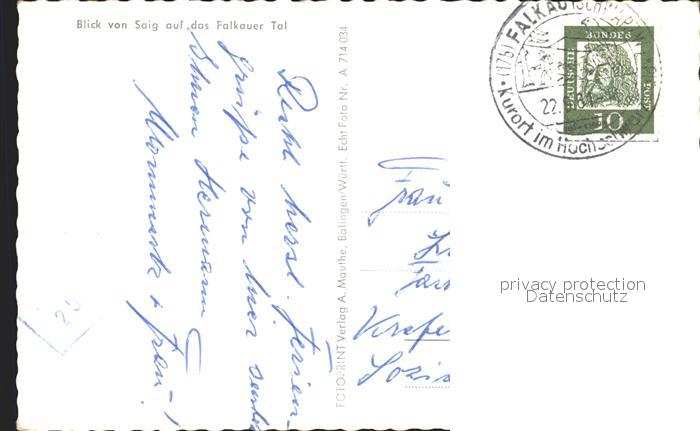 Blick von Saig auf das Falkauer Tal
Recht herzl. Ferien-
grüße von hier sendet
Ihnen Hermann
u. Frau!
FOTOPRINT Verlag A. Mauthe, Balingen/Württ. Echt Foto Nr. A 714 034
Frau
Krefe
(17b) FALKAU
Kurort im Hochschw
22.
DEUTSCHE
BUNDES
POST
10
privacy protection
Datenschutz
23